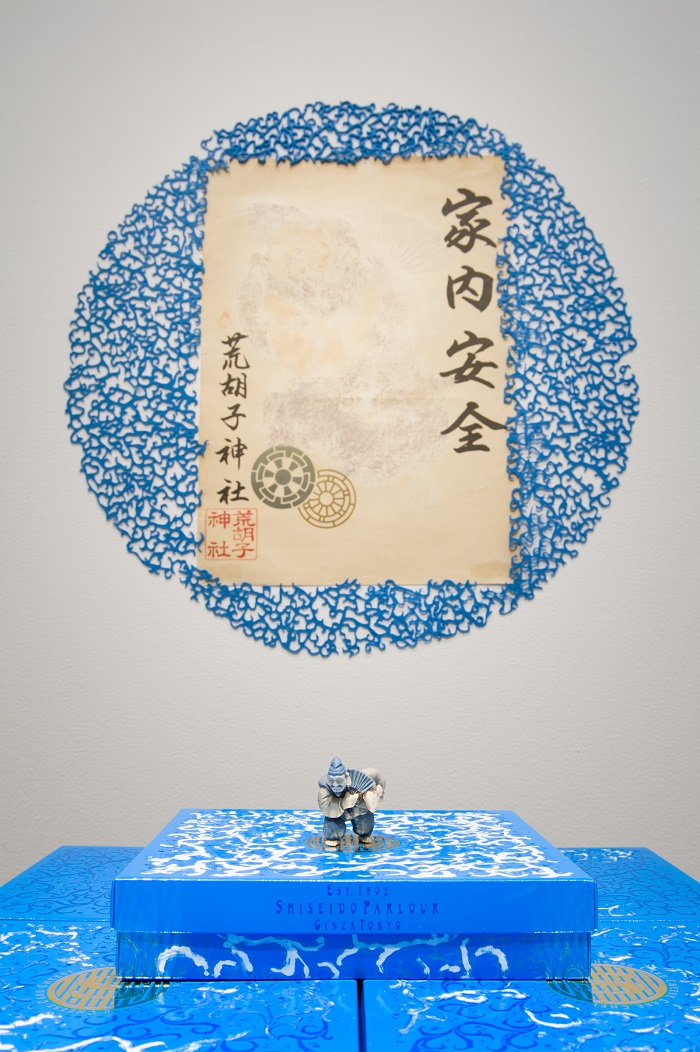 家内安全
荒胡子神社
荒胡子
神社
EST.1902
SHISEIDO PARLOUR
GINZA TOKYO